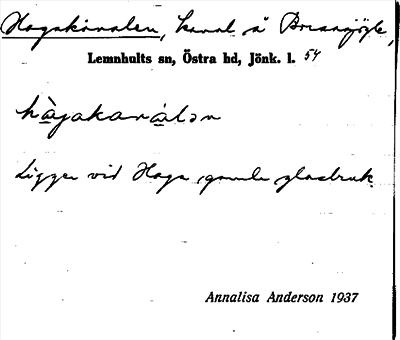 Hagakanalen, kanal å
Lemnhults sn, Östra hd, Jönk. l. 54
hàgakanàlən
Ligger vid Haga gamla glasbruk.
Annalisa Anderson 1937